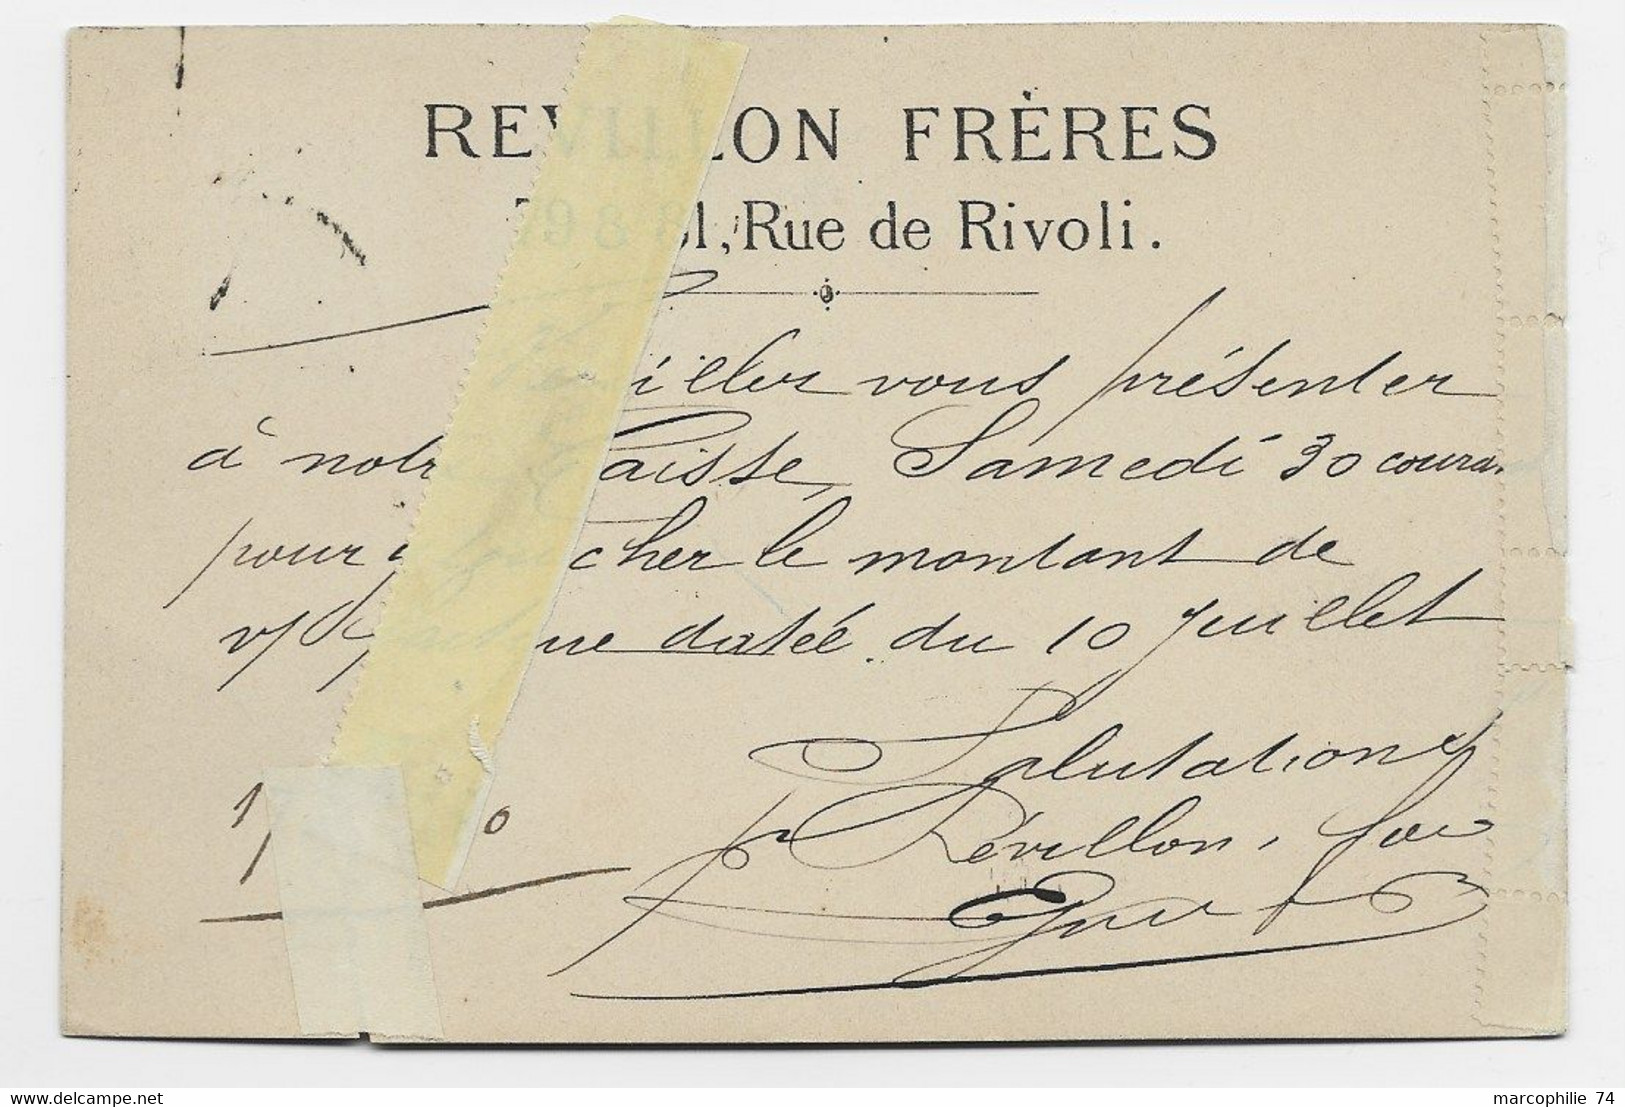 REVILLON FRÈRES
79 & 81, Rue de Rivoli.
Veuillez vous présenter
à notre Caisse, Samedi 30 couran
pour toucher le montant de
v/ facture datée du 10 Juillet
Salutations
Révillon,
marcophilie 74